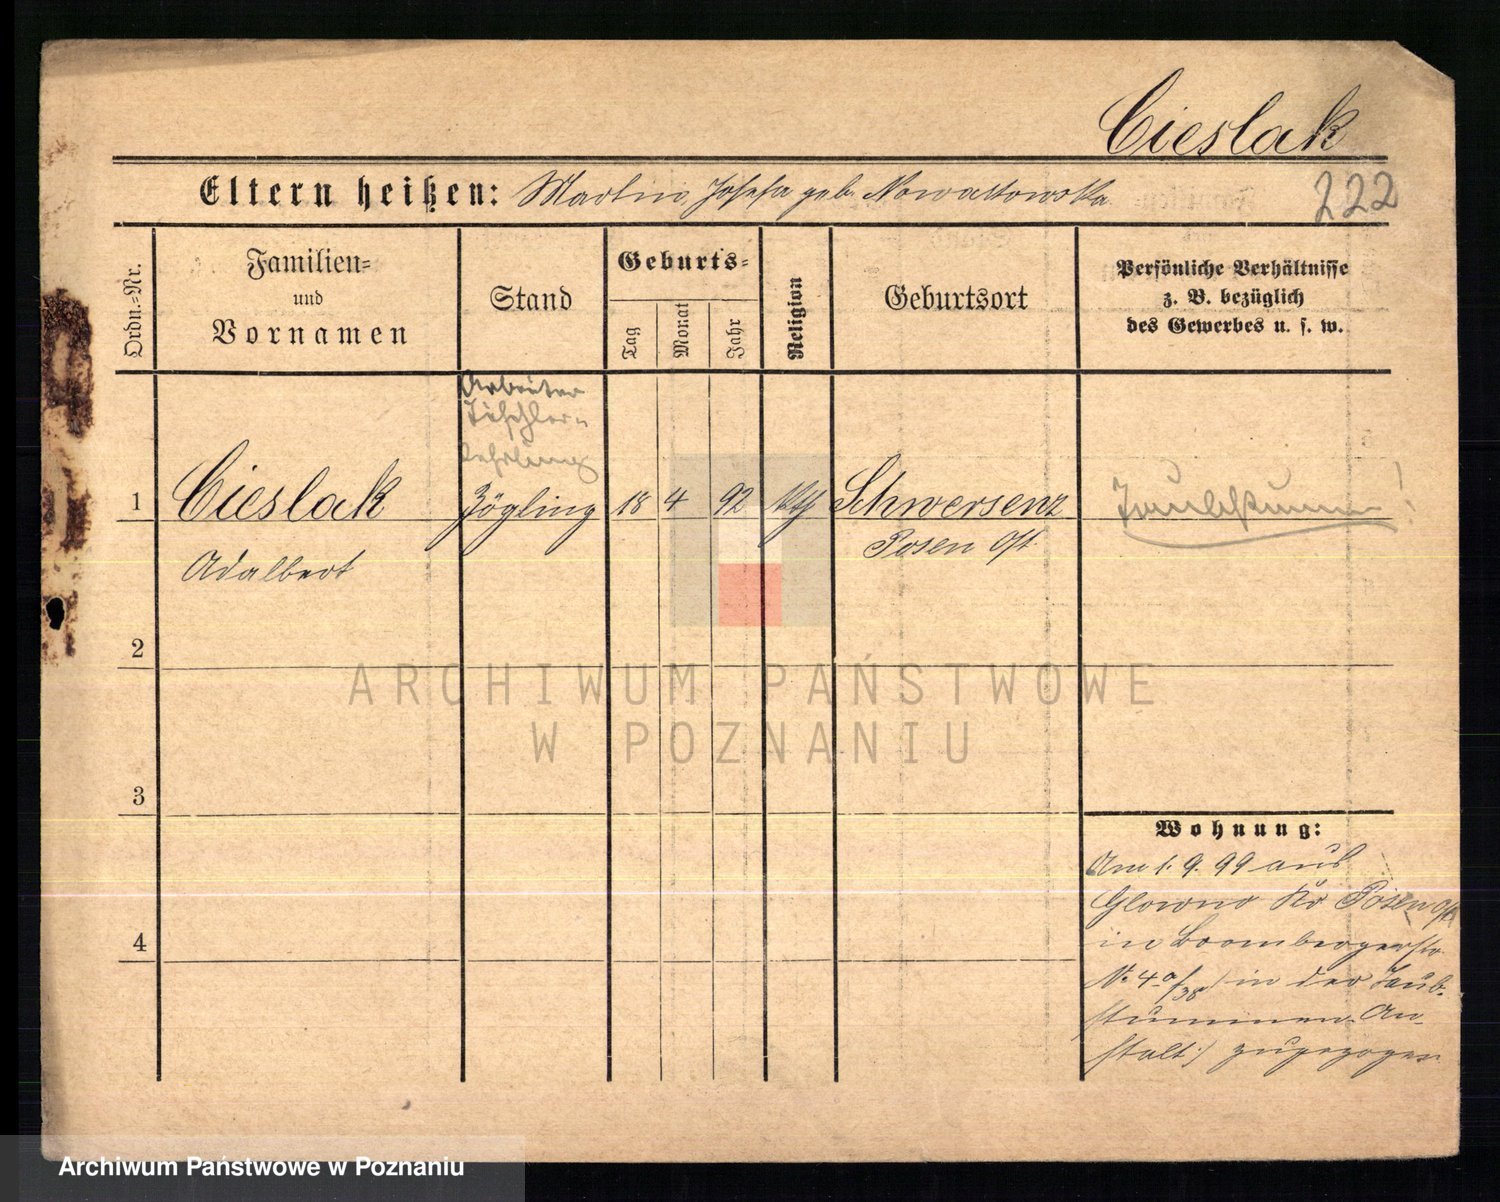 Cieslak
Eltern heißen: Martin, Josefa geb. Nowakowska
222
Ordn.-Nr.
Familien-
und
Vornamen
Stand
Geburts-
Tag
Monat
Jahr
Religion
Geburtsort
Persönliche Verhältnisse
z. B. bezüglich
des Gewerbes u. s. w.
Arbeiter
Tischler-
Lehrling
1 Cieslak Zögling 18 4 92 kth Schwersenz Taubstumm!
Posen Ost
Adalbert
2
3
4
Wohnung:
Am 1. 9. 99 aus
Glowno Kr Posen Ost
in Brombergerstr
No 4a/38 (in der Taub-
stummen-An-
stalt) zugezogen
ARCHIWUM PAŃSTWOWE
W POZNANIU
Archiwum Państwowe w Poznaniu